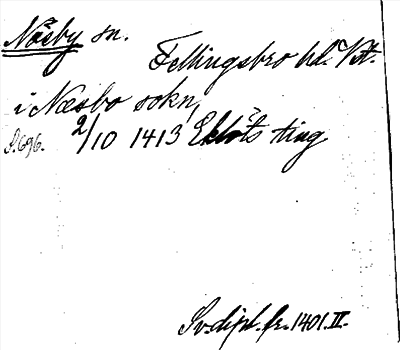 Näsby sn.
Fellingsbro hd. Vst.
i Næsbo sokn,
S. 696. 2/10 1413 Ekløs ting
Sv. dipl. fr. 1401. II.